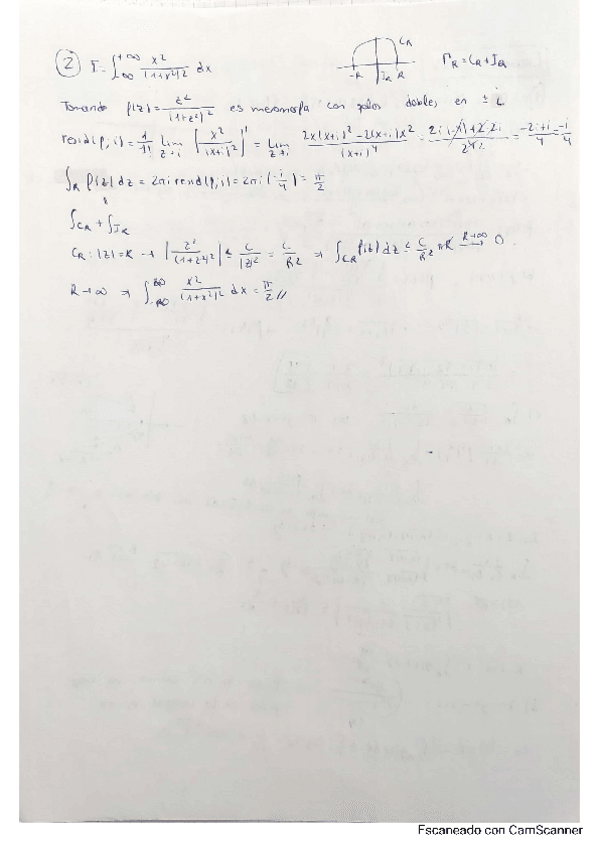 2 I = ∫_{-∞}^{+∞} x²/(1+x²)² dx
C_R
-R I_R R
Γ_R = C_R + I_R
Tomando f(z) = z²/(1+z²)² es meromorfa con polos dobles en ± i
resid(f,i) = 1/1! lim_{z→i} [x²/(x+i)²]' = lim_{z→i} (2x(x+i)² - 2(x+i)x²)/(x+i)⁴ = = (-2i+i)/4 = -i/4
∫_R f(z) dz = 2πi resid(f,i) = 2πi (-i/4) = π/2
∫_{C_R} + ∫_{I_R}
C_R: |z| = R → |z²/(1+z²)²| ≤ C/|z|² = C/R² ⇒ ∫_{C_R} f(z) dz ≤ C/R² πR →^{R→∞} 0.
R→∞ ⇒ ∫_{-∞}^{∞} x²/(1+x²)² dx = π/2 //
Escaneado con CamScanner